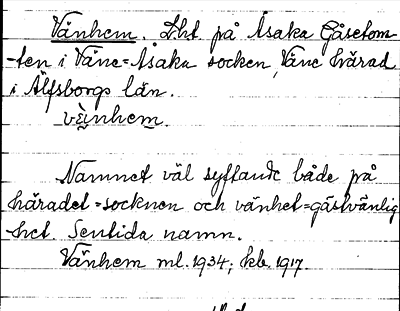 Vänhem. Lht på Åsaka Gåsetom-
ten i Väne-Åsaka socken, Väne härad
i Älfsborgs län.
vä̀nhem.
Namnet väl syftande både på
häradet=socknen och vänhet=gästvänlig
het. Sentida namn.
Vänhem ml. 1934; kb. 1917.